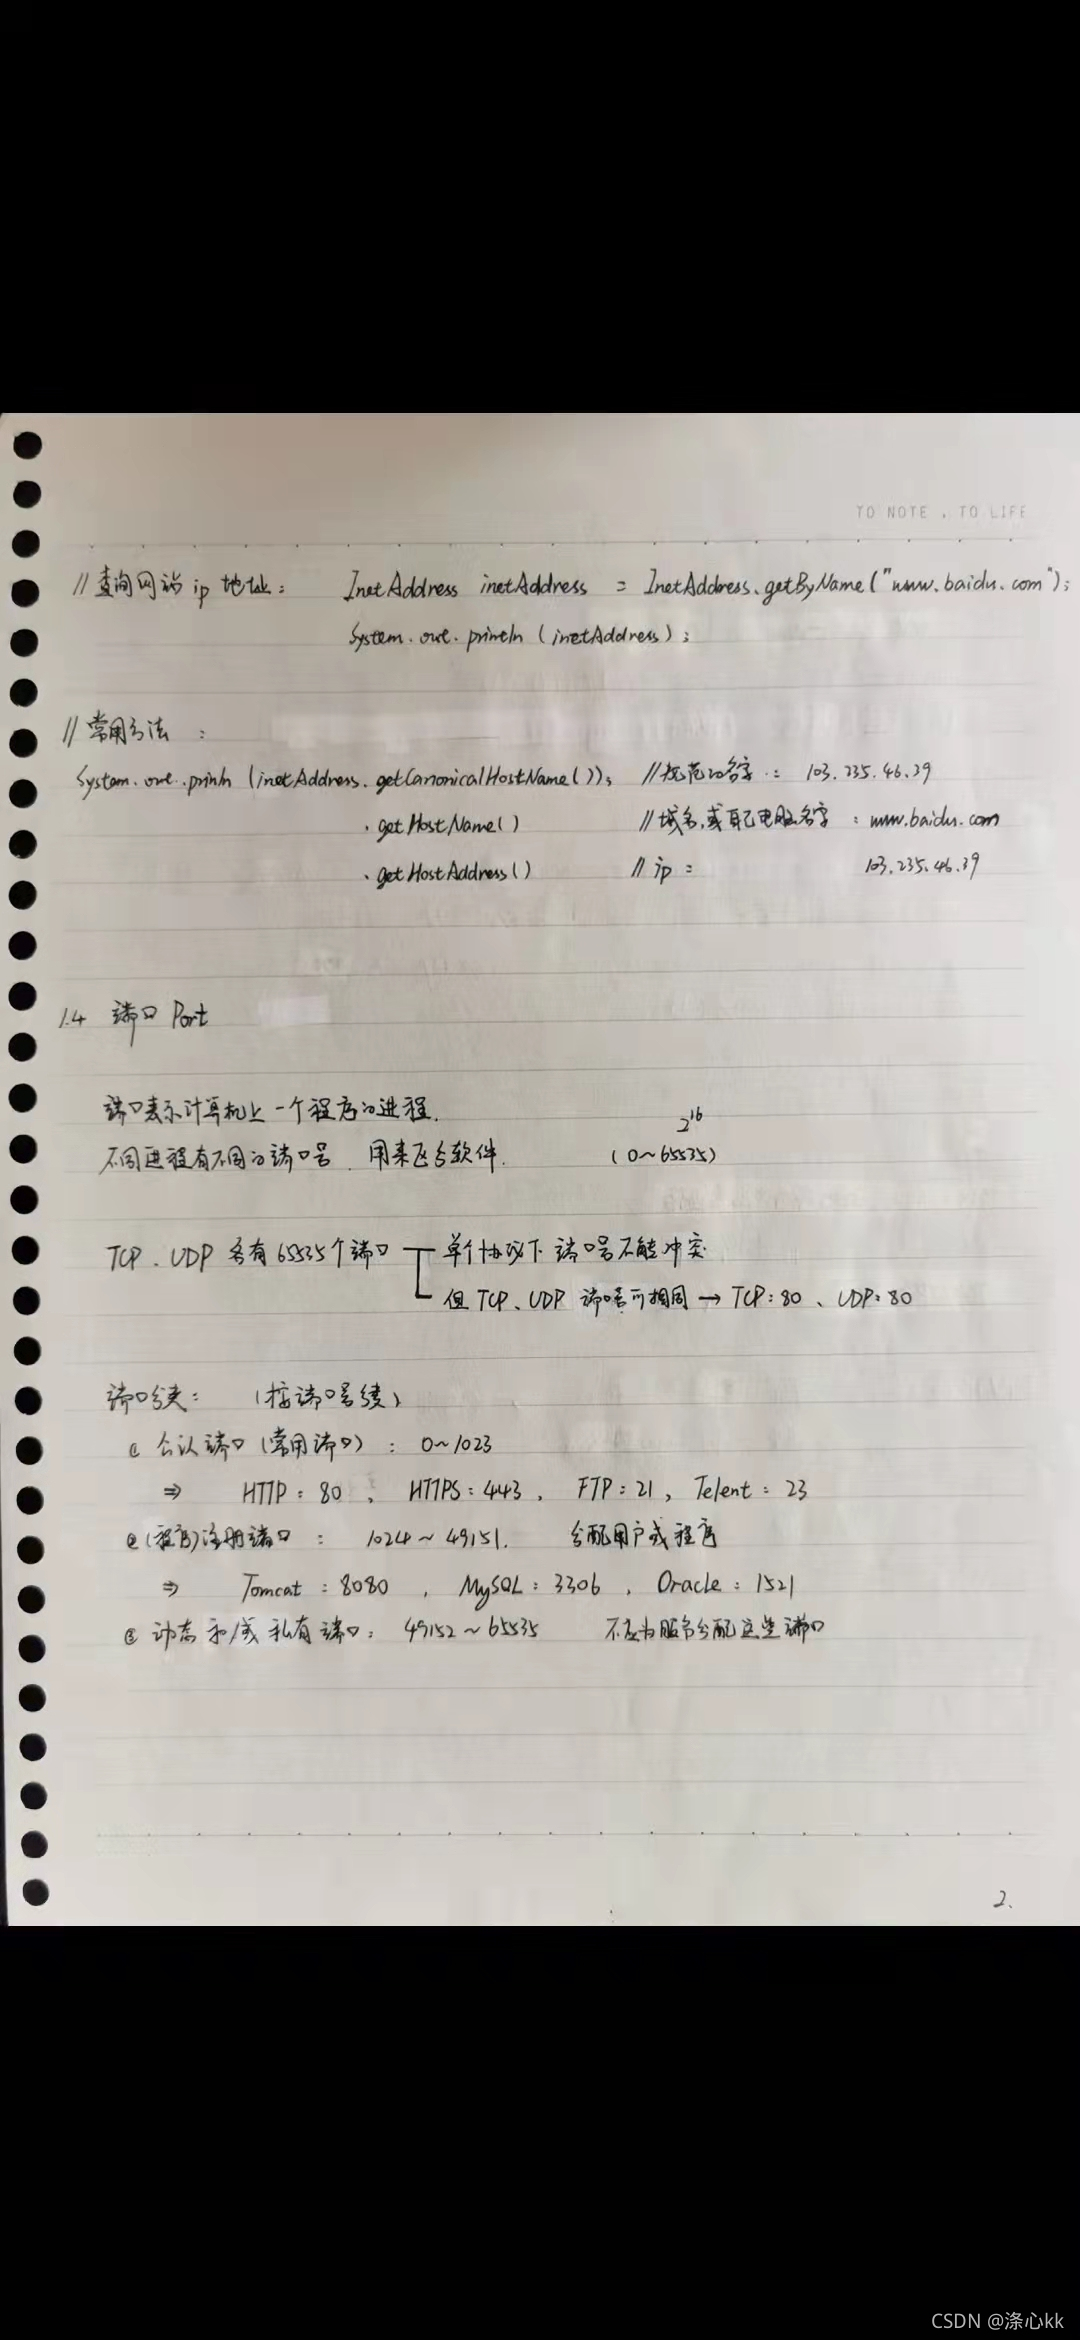 TO NOTE , TO LIFE
//查询网站ip地址: InetAddress inetAddress = InetAddress.getByName("www.baidu.com");
System.out.println(inetAddress);
//常用方法:
System.out.println(inetAddress.getCanonicalHostName()); //规范的名字: 103.235.46.39
.getHostName() //域名,或自己电脑名字: www.baidu.com
.getHostAddress() //ip: 103.235.46.39
1.4 端口 Port
端口表示计算机上一个程序的进程.
2^16
不同进程有不同的端口号, 用来区分软件. (0~65535)
TCP、UDP 各有65535个端口 单个协议下 端口号不能冲突
但TCP、UDP 端口号可相同 → TCP:80、UDP:80
端口分类: (按端口号)
① 公认端口(常用端口): 0~1023
⇒ HTTP:80, HTTPS:443, FTP:21, Telent:23
②(程序)注册端口: 1024~49151. 分配用户或程序
⇒ Tomcat:8080, MySQL:3306, Oracle:1521
③ 动态和/或私有端口: 49152~65535 不应为服务分配这些端口
2、
CSDN @涤心kk